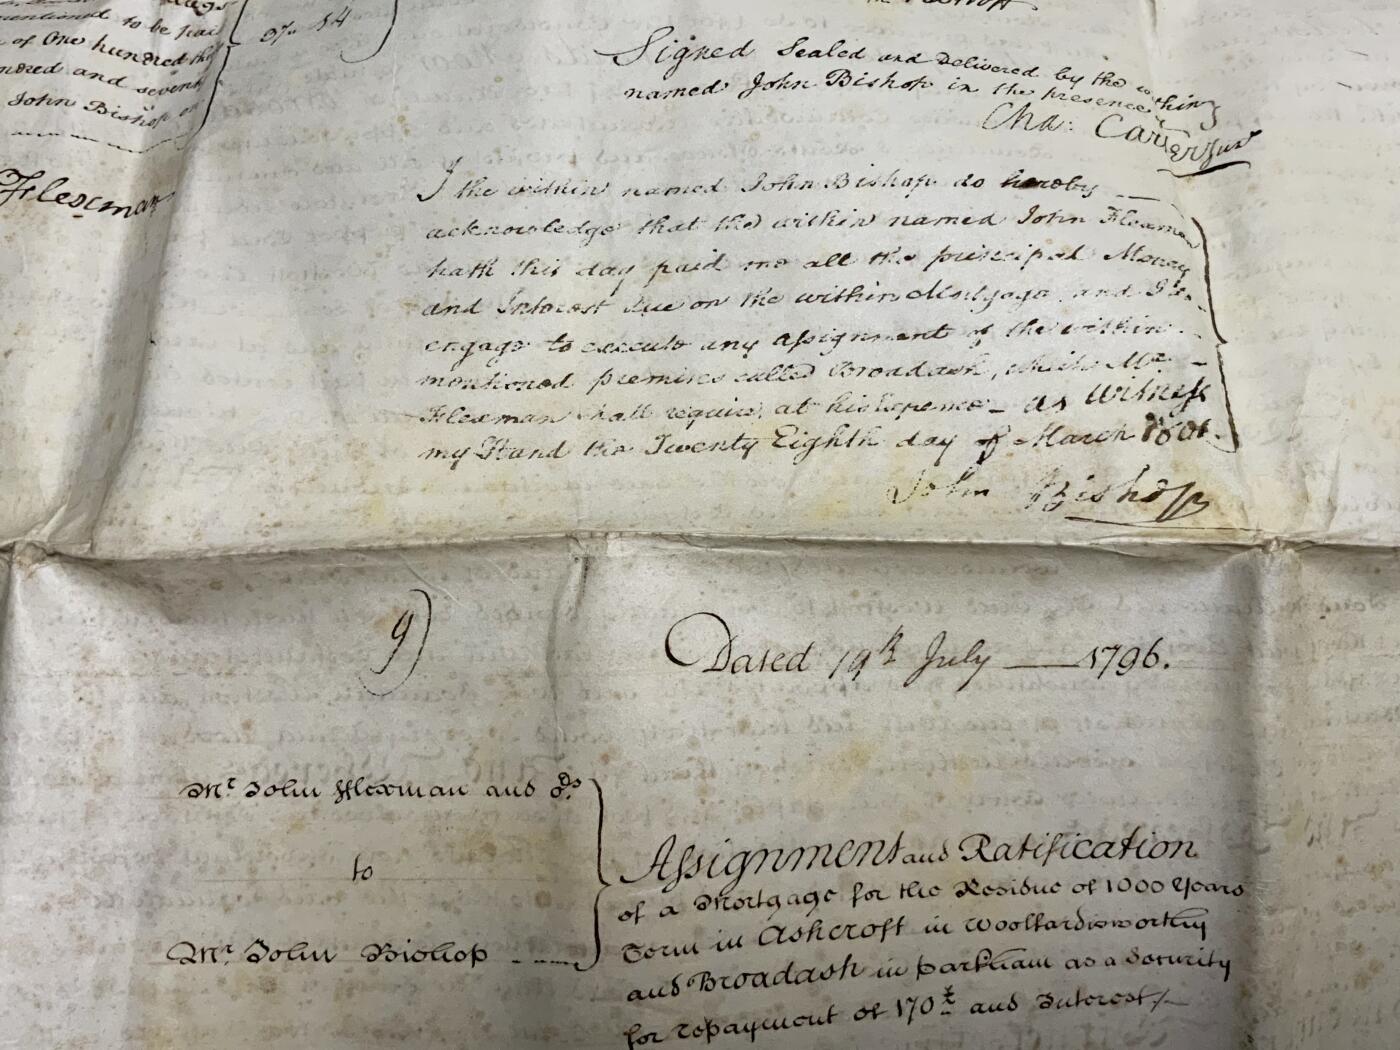 mentioned to be paid
of One hundred
and seventy
John Bishop
170 " 14
Flexman
Signed Sealed and Delivered by the within
named John Bishop in the presence of
Cha: Carter Junr
I the within named John Bishop do hereby
acknowledge that the within named John Flexman
hath this day paid me all the principal Money
and Interest due on the within Mortgage, and I do
engage to execute any Assignment of the within
mentioned premises called Broadash, which Mr.
Flexman shall require, at his Expence - as Witness
my Hand the Twenty Eighth day of March 1801.
John Bishop
9)
Dated 19th July — 1796.
Mr. John Flexman and ors.
to
Mr. John Bishop
Assignment and Ratification
of a Mortgage for the Residue of 1000 Years
Term in Ashcroft in Woolfardisworthy
and Broadash in Parkham as a Security
for repayment of 170£ and Interest/-